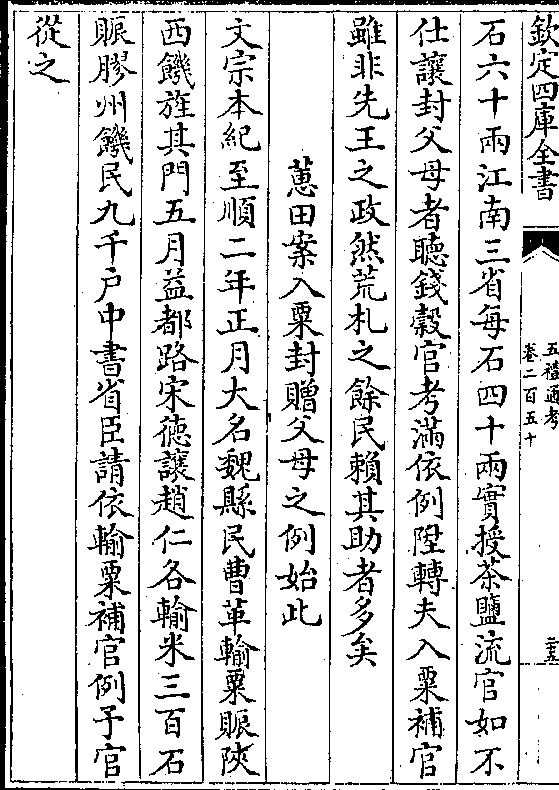 欽定四庫全書
五禮通考
卷二百五十
二十五
石六十兩江南三省每石四十兩實授茶鹽流官如不
仕讓封父母者聽錢穀官考滿依例陞轉夫入粟補官
雖非先王之政然荒札之餘民賴其助者多矣
蕙田案入粟封贈父母之例始此
文宗本紀至順二年正月大名魏縣民曹革輸粟賑陜
西饑旌其門五月益都路宋德讓趙仁各輸米三百石
賑膠州饑民九千户中書省臣請依輸粟補官例予官
從之